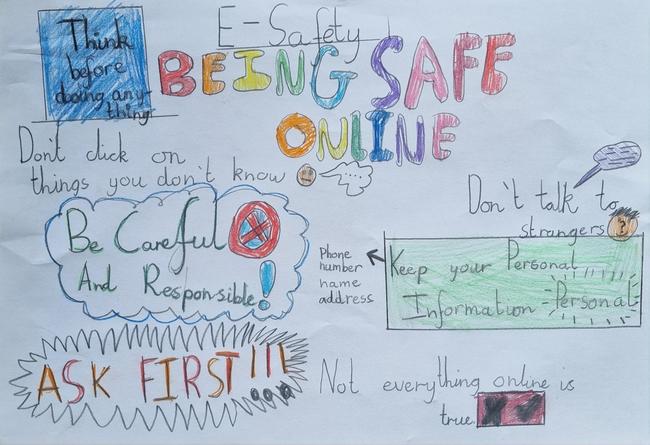 E-Safety
Think
before
doing any-
thing
BEING SAFE
ONLINE
Don't click on
things you don't know
Don't talk to
strangers
?
Be Careful
And Responsible!
Phone
number
name
address
Keep your Personal
Information - Personal
ASK FIRST!!!
Not everything online is
true.